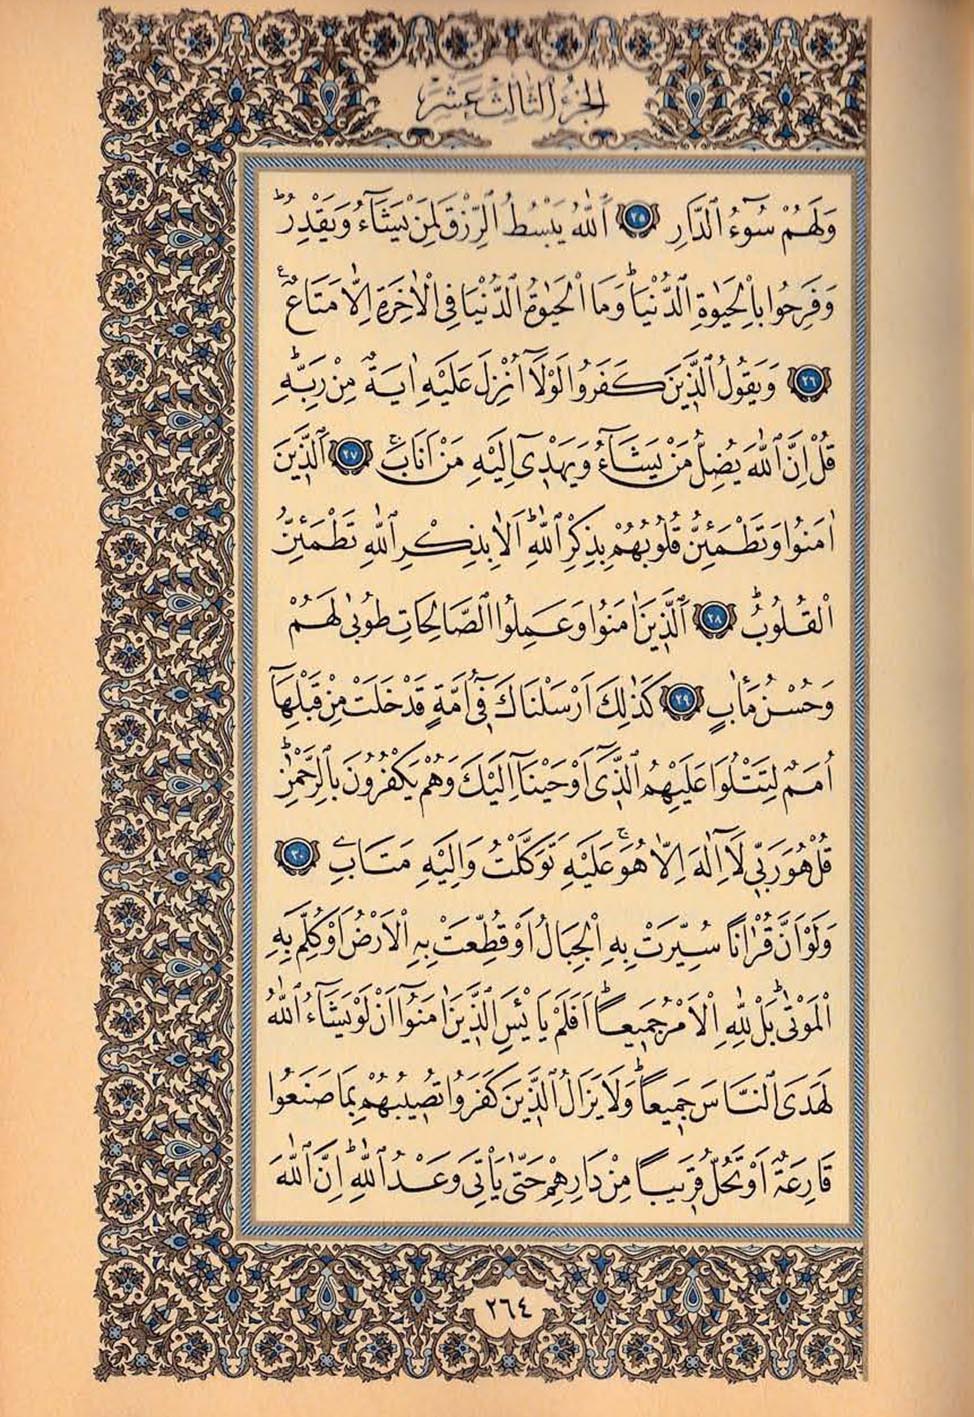 الجزء الثالث عشر
وَلَهُمْ سُٓوءُ الدَّارِ ﴿٢٥﴾ اَللّٰهُ يَبْسُطُ الرِّزْقَ لِمَنْ يَشَٓاءُ وَيَقْدِرُۜ
وَفَرِحُوا بِالْحَيٰوةِ الدُّنْيَاۜ وَمَا الْحَيٰوةُ الدُّنْيَا فِي الْاٰخِرَةِ اِلَّا مَتَاعٌ۟
﴿٢٦﴾ وَيَقُولُ الَّذ۪ينَ كَفَرُوا لَوْلَٓا اُنْزِلَ عَلَيْهِ اٰيَةٌ مِنْ رَبِّه۪ۜ
قُلْ اِنَّ اللّٰهَ يُضِلُّ مَنْ يَشَٓاءُ وَيَهْد۪ٓي اِلَيْهِ مَنْ اَنَابَۚ ﴿٢٧﴾ اَلَّذ۪ينَ
اٰمَنُوا وَتَطْمَئِنُّ قُلُوبُهُمْ بِذِكْرِ اللّٰهِۜ اَلَا بِذِكْرِ اللّٰهِ تَطْمَئِنُّ
الْقُلُوبُۜ ﴿٢٨﴾ اَلَّذ۪ينَ اٰمَنُوا وَعَمِلُوا الصَّالِحَاتِ طُوبٰى لَهُمْ
وَحُسْنُ مَاٰبٍ ﴿٢٩﴾ كَذٰلِكَ اَرْسَلْنَاكَ ف۪ٓي اُمَّةٍ قَدْ خَلَتْ مِنْ قَبْلِهَٓا
اُمَمٌ لِتَتْلُوَا عَلَيْهِمُ الَّذ۪ٓي اَوْحَيْنَٓا اِلَيْكَ وَهُمْ يَكْفُرُونَ بِالرَّحْمٰنِۜ
قُلْ هُوَ رَبّ۪ي لَٓا اِلٰهَ اِلَّا هُوَۚ عَلَيْهِ تَوَكَّلْتُ وَاِلَيْهِ مَتَابِ ﴿٣٠﴾
وَلَوْ اَنَّ قُرْاٰنًا سُيِّرَتْ بِهِ الْجِبَالُ اَوْ قُطِّعَتْ بِهِ الْاَرْضُ اَوْ كُلِّمَ بِهِ
الْمَوْتٰىۜ بَلْ لِلّٰهِ الْاَمْرُ جَم۪يعًاۜ اَفَلَمْ يَايْـَٔسِ الَّذ۪ينَ اٰمَنُٓوا اَنْ لَوْ يَشَٓاءُ اللّٰهُ
لَهَدَى النَّاسَ جَم۪يعًاۜ وَلَا يَزَالُ الَّذ۪ينَ كَفَرُوا تُص۪يبُهُمْ بِمَا صَنَعُوا
قَارِعَةٌ اَوْ تَحُلُّ قَر۪يبًا مِنْ دَارِهِمْ حَتّٰى يَأْتِيَ وَعْدُ اللّٰهِۜ اِنَّ اللّٰهَ
٢٦٤